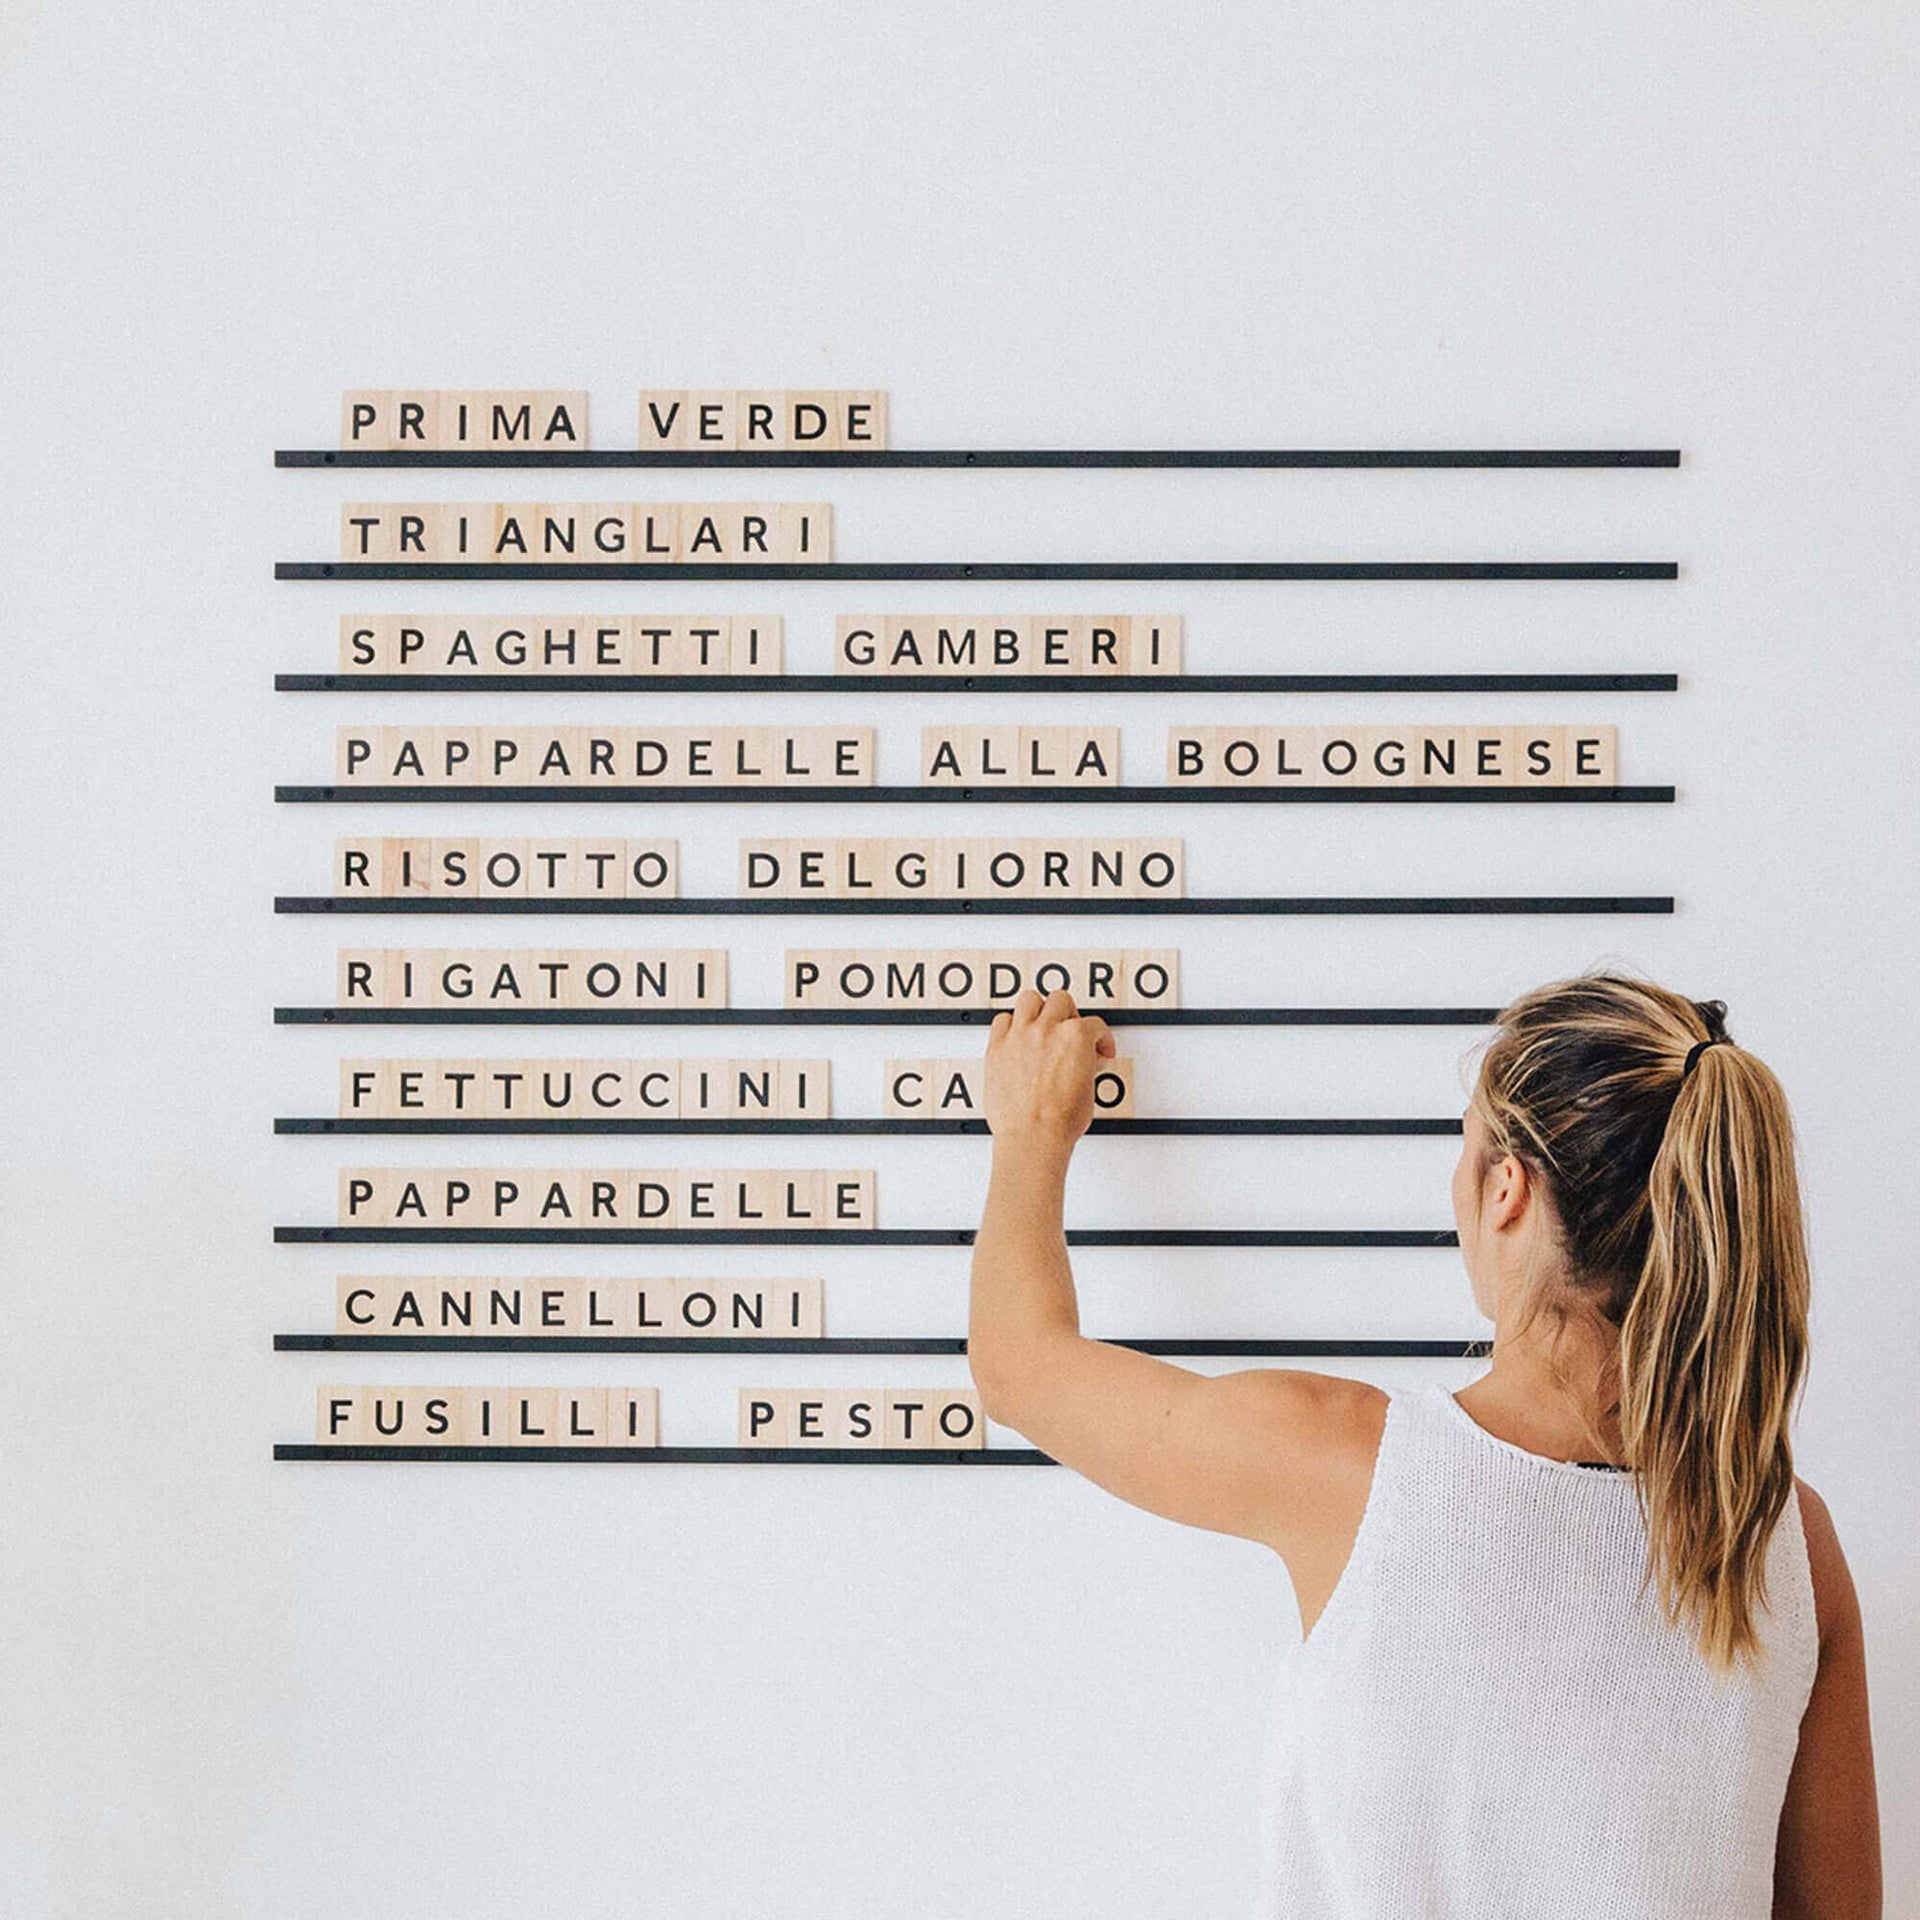 PRIMA VERDE
TRIANGLARI
SPAGHETTI GAMBERI
PAPPARDELLE ALLA BOLOGNESE
RISOTTO DELGIORNO
RIGATONI POMODORO
FETTUCCINI
PAPPARDELLE
CANNELLONI
FUSILLI PESTO